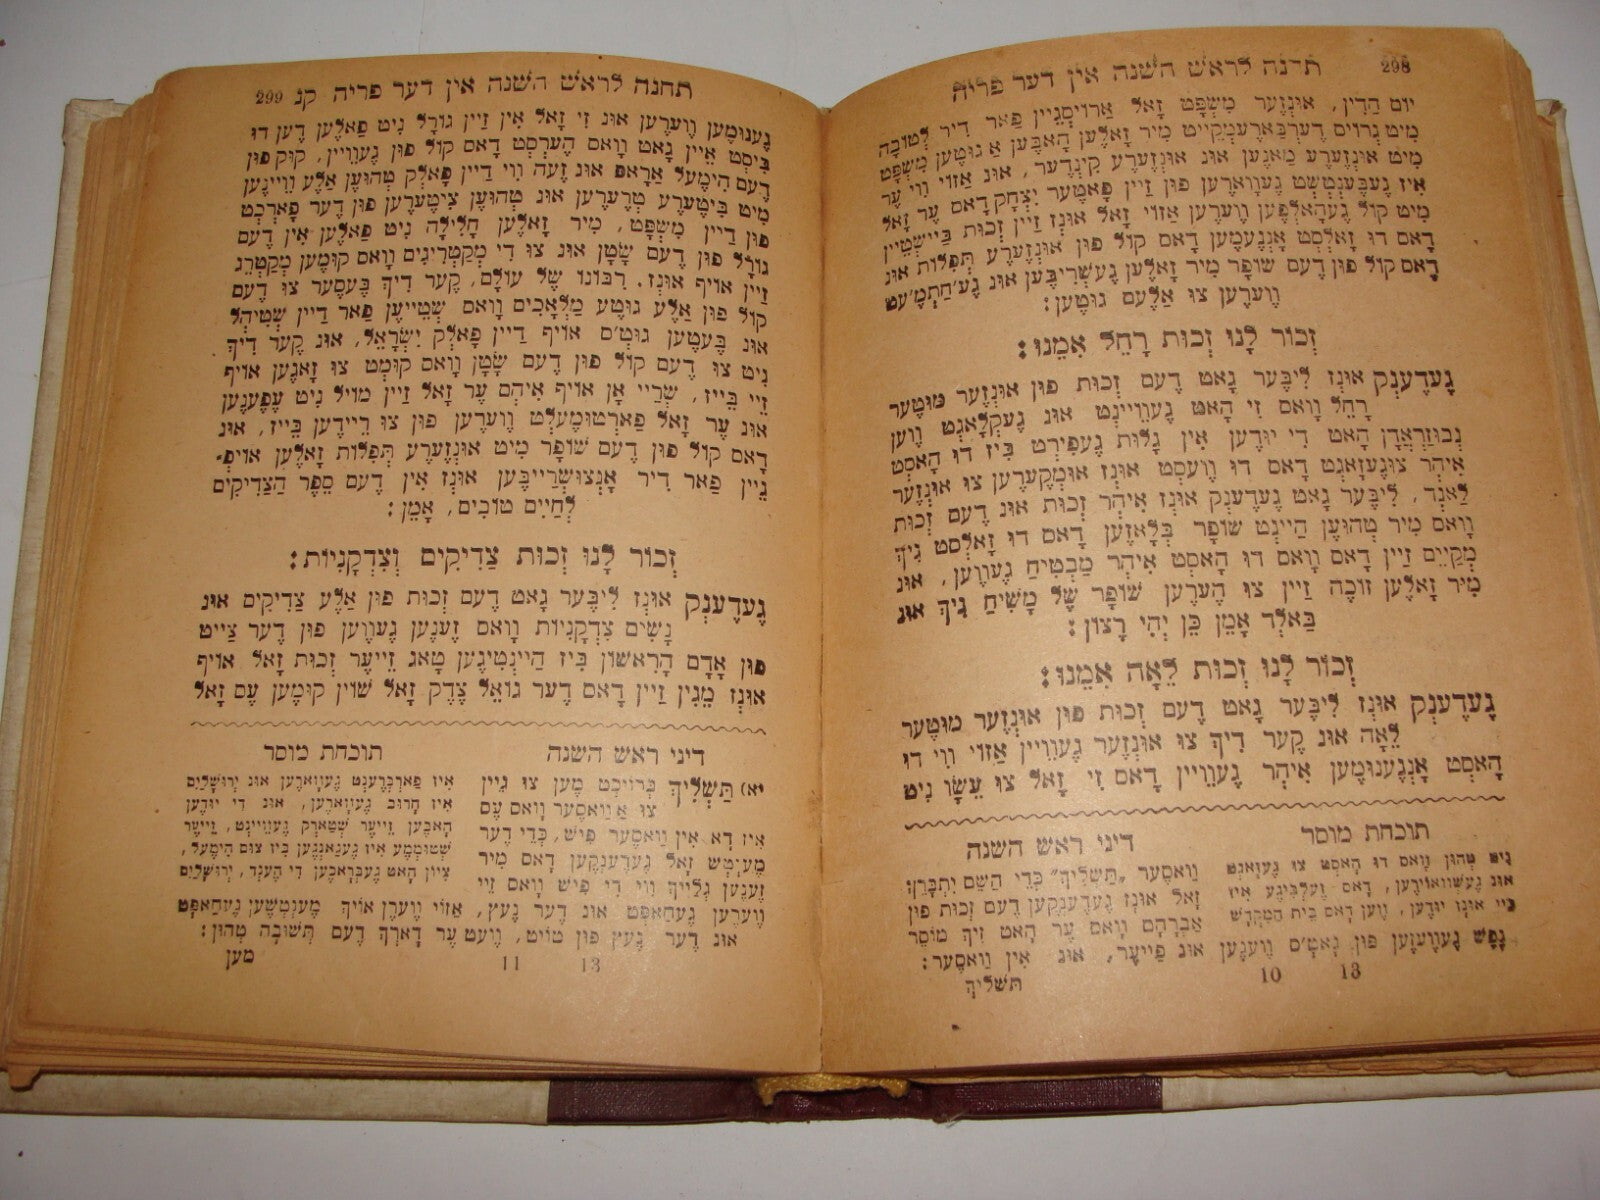 298 תחנה לראש השנה אין דער פריה
יוֹם הַדִין, אוּנְזער מִשְפָּט זאָל אַרוֹיסְגֵיין פאַר דִיר לְטוֹבָה
מִיט גְרוֹיס דֶערְבַּארֶעמְקַייט מִיר זאָלֶען האָבֶּען אַ גוּטֶען מִשְפָּט
מִיט אוּנְזֶערֶע מאַנֶען אוּנ אוּנְזֶערֶע קִינְדֶער, אוּנ אַזוֹי ווִי עֶר
אִיז גֶעבֶּענְטְשט גֶעוואָרֶען פוּן זַיין פאָטֶער יִצְחָק דאָס עֶר זאָל
מִיט קוֹל גֶעהאָלְפֶען ווֶערֶען אַזוֹי זאָל אוּנְז זַיין זְכוּת בַּיישְטֵיין
דאָס דוּ זאָלְסט אָנְנֶעמֶען דאָס קוֹל פוּן אוּנְזֶערֶע תְּפִלוֹת אוּנ
דאָס קוֹל פוּן דֶעם שוֹפָר מִיר זאָלֶען גֶעשְׁרִיבֶּען אוּנ גֶע׳חַתְמֶ׳עט
ווֶערֶען צוּ אַלֶעם גוּטֶען:
זְכוֹר לָנוּ זְכוּת רָחֵל אִמֵנוּ:
גֶעדֶענְק אוּנז לִיבֶּער גאָט דֶעם זְכוּת פוּן אוּנְזֶער מוּטֶער
רָחֵל ווָאס זִי האָט גֶעוויינְט אוּנ גֶעקְלאָגְט ווֶען
נְבוּזַרְאֲדָן האָט דִי יוּדֶען אִין גָלוּת גֶעפִירְט בִּיז דוּ האָסְט
אִיהְר צוּגֶעזאָגְט דאָס דוּ ווֶעסְט אוּנז אוּמְקֶערֶען צוּ אוּנְזֶער
לַאנְד, לִיבֶּער גאָט גֶעדֶענְק אוּנז אִיהְר זְכוּת אוּנ דֶעם זְכוּת
ווָאס מִיר טְהוּעֶן הַיינְט שוֹפָר בְּלאָזֶען דאָס דוּ זאָלְסט גִיךְ
מְקַיֵים זַיין דאָס ווָאס דוּ האָסְט אִיהְר מַבְטִיחַ גֶעווֶען, אוּנ
מִיר זאָלֶען זוֹכֶה זַיין צוּ הֶערֶען שוֹפָר שֶׁל מָשִׁיחַ גִיךְ אוּנ
בַּאלְד אָמֵן כֵּן יְהִי רָצוֹן:
זְכוֹר לָנוּ זְכוּת לֵאָה אִמֵנוּ:
גֶעדֶענְק אוּנז לִיבֶּער גאָט דֶעם זְכוּת פוּן אוּנְזֶער מוּטֶער
לֵאָה אוּנ קֶער דִיךְ צוּ אוּנְזֶער גֶעוויין אַזוֹי ווִי דוּ
האָסְט אָנְגֶענוּמֶען אִיהְר גֶעוויין דאָס זִי זאָל צוּ עֵשָׂו נִיט
תוכחת מוסר
נִיט טְהוּן ווָאס דוּ האָסְט צוּ גֶעזאָגְט
אוּנ גֶעשְׁוואוֹירֶען, דאָס זֶעלְבִּיגֶע אִיז
בַּיי אוּנז יוּדֶען, ווֶען דאָס בֵּית הַמִקְדָשׁ
דיני ראש השנה
ווַאסֶער „תַּשְׁלִיךְ״ כְּדֵי הַשֵׁם יִתְבָּרֵךְ
זאָל אוּנז גֶעדֶענְקֶען דֶעם זְכוּת פוּן
אַבְרָהָם ווָאס עֶר האָט זִיךְ מוֹסֵר
נֶפֶשׁ גֶעווֶעזֶען פוּן גאָט׳ס ווֶעגֶען אוּנ פַייעֶר, אוּנ אִין ווַאסֶער:
13 10 תשליך
תחנה לראש השנה אין דער פריה קנ 299
גֶענוּמֶען ווֶערֶען אוּנ זִי זאָל אִין זַיין גוֹרָל נִיט פַאלֶען דֶען דוּ
בִּיסְט אֵיין גאָט ווָאס הֶערְסְט דאָס קוֹל פוּן גֶעווֵיין, קוּק פוּן
דֶעם הִימֶעל אַרַאפּ אוּנ זֶעה ווִי דַיין פאָלְק טְהוּעֶן אַלֶע ווֵיינֶען
מִיט בִּיטֶערֶע טְרֶערֶען אוּנ טְהוּעֶן צִיטֶערֶען פוּן דֶער פאָרְכְט
פוּן דַיין מִשְׁפָּט, מִיר זאָלֶען חָלִילָה נִיט פַאלֶען אִין דֶעם
גוֹרָל פוּן דֶעם שָׂטָן אוּנ צוּ דִי מְקַטְרִיגִים ווָאס קוּמֶען מְקַטְרֵג
זַיין אוֹיף אוּנז. רִבּוֹנוֹ שֶׁל עוֹלָם, קֶער דִיךְ בֶּעסֶער צוּ דֶעם
קוֹל פוּן אַלֶע גוּטֶע מַלְאָכִים ווָאס שְׁטֵייעֶן פַאר דַיין שְׁטוּהְל
אוּנ בֶּעטֶען גוּט׳ס אוֹיף דַיין פאָלְק יִשְׂרָאֵל, אוּנ קֶער דִיךְ
נִיט צוּ דֶעם קוֹל פוּן דֶעם שָׂטָן ווָאס קוּמְט צוּ זאָגֶען אוֹיף
זֵיי בֵּייז, שְׁרַיי אָן אוֹיף אִיהְם עֶר זאָל זַיין מוֹיל נִיט עֶפֶענֶען
אוּנ עֶר זאָל פַארְטוּמֶעלְט ווֶערֶען פוּן צוּ רֵיידֶען בֵּייז, אוּנ
דאָס קוֹל פוּן דֶעם שוֹפָר מִיט אוּנְזֶערֶע תְּפִלוֹת זאָלֶען אוֹיפְ־
גֵיין פַאר דִיר אָנְצוּשְׁרַייבֶּען אוּנז אִין דֶעם סֵפֶר הַצַדִיקִים
לְחַיִים טוֹבִים, אָמֵן:
זְכוֹר לָנוּ זְכוּת צַדִיקִים וְצִדְקָנִיוֹת:
גֶעדֶענְק אוּנז לִיבֶּער גאָט דֶעם זְכוּת פוּן אַלֶע צַדִיקִים אוּנ
נָשִׁים צִדְקָנִיוֹת ווָאס זֶענֶען גֶעווֶען פוּן דֶער צַייט
פוּן אָדָם הָרִאשׁוֹן בִּיז הַיינְטִיגֶען טאָג זֵייעֶר זְכוּת זאָל אוֹיף
אוּנז מֵגִין זַיין דאָס דֶער גוֹאֵל צֶדֶק זאָל שׁוֹין קוּמֶען עֶם זאָל
דיני ראש השנה
יא) תַּשְׁלִיךְ בְּרוֹיכְט מֶען צוּ גֵיין
צוּ אַ ווַאסֶער ווָאס עֶם
אִיז דאָ אִין ווַאסֶער פִישׁ, כְּדֵי דֶער
מֶענְטְשׁ זאָל גֶעדֶענְקֶען דאָס מִיר
זֶענֶען גְלַייךְ ווִי דִי פִישׁ ווָאס זֵיי
תוכחת מוסר
אִיז פַארְבְּרֶענְט גֶעוואָרֶען אוּנ יְרוּשָׁלַיִם
אִיז חָרוּב גֶעוואָרֶען, אוּנ דִי יוּדֶען
האָבֶּען זֵייעֶר שְׁטַארְק גֶעווֵיינְט, זֵייעֶר
שְׁטוּמֶע אִיז גֶעגַאנְגֶען בִּיז צוּם הִימֶעל,
צִיוֹן האָט גֶעבְּראָכֶען דִי הֶענְד, יְרוּשָׁלַיִם
ווֶערֶען גֶעחַאפְּט אוּנ דֶער נֶעץ, אַזוֹי ווֶערְן אוֹיךְ מֶענְטְשֶׁען גֶעחַאפְּט
אוּנ דֶער נֶעץ פוּן טוֹיט, ווֶעט עֶר דַארְךְ דֶעם תְּשׁוּבָה טְהוּן:
13 11 מען